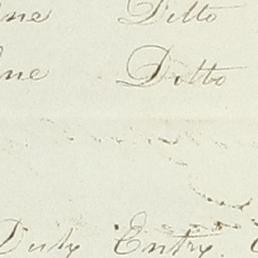 ne Ditto
ne Ditto
Duty Entry